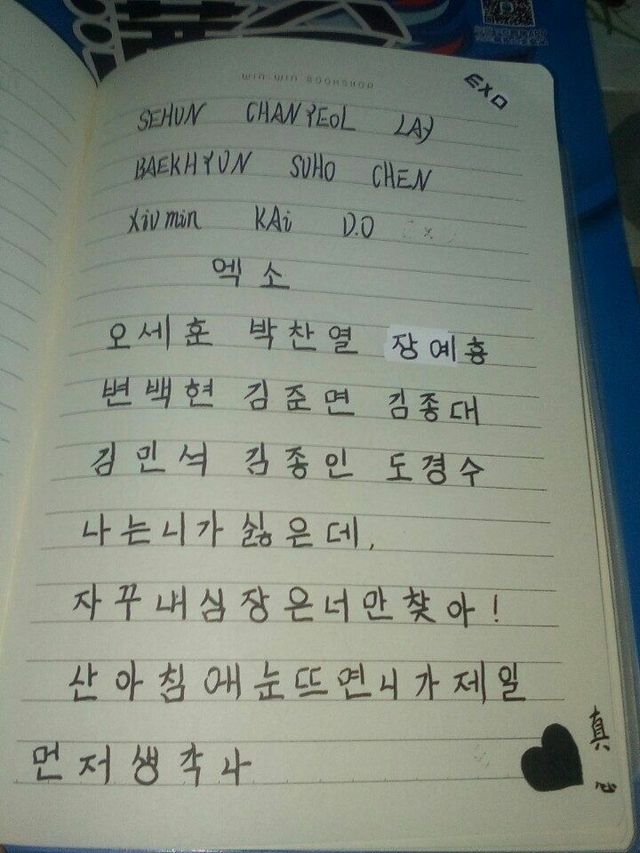 WIN-WIN BOOKSHOP
EXO
SEHUN CHANYEOL LAY
BAEKHYUN SUHO CHEN
Xiumin KAi D.O
엑소
오세훈 박찬열 장예흥
변백현 김준면 김종대
김민석 김종인 도경수
나는니가 싫은데,
자꾸내심장은너만찾아!
산아침애눈뜨면니가제일
먼저생각나
真心